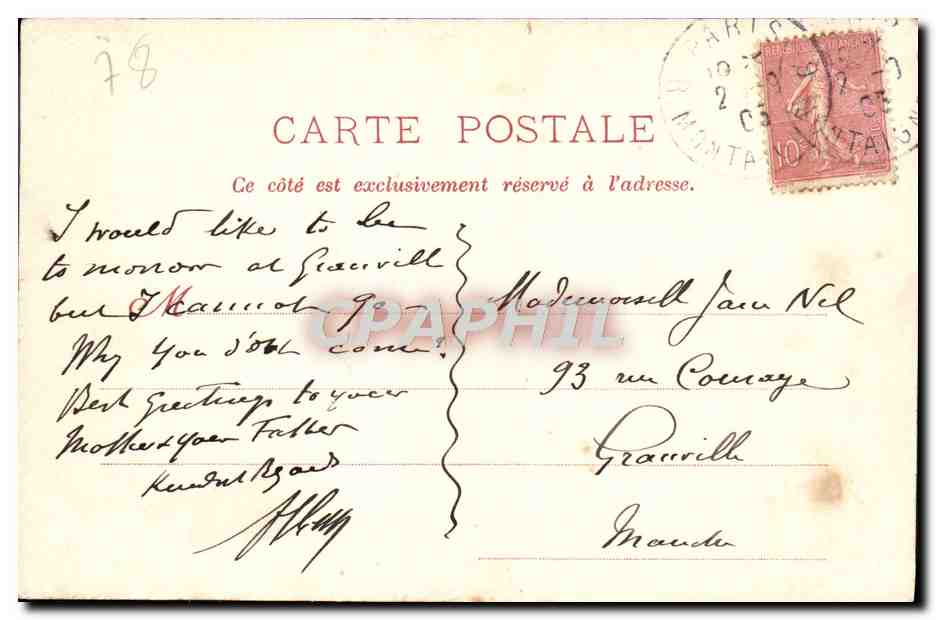 78
PARIS
R. MONTAIGNE
2
03
REPUBLIQUE FRANÇAISE
10
CARTE POSTALE
Ce côté est exclusivement réservé à l'adresse.
I would like to be
to morrow at Granvill
but I cannot go
Why you d'ont come?
Best Greetings to your
Mother & your Father
Kindest Regards
Mademoiselle Nel
93 rue Couraye
Granville
Manche
CPAPHIL